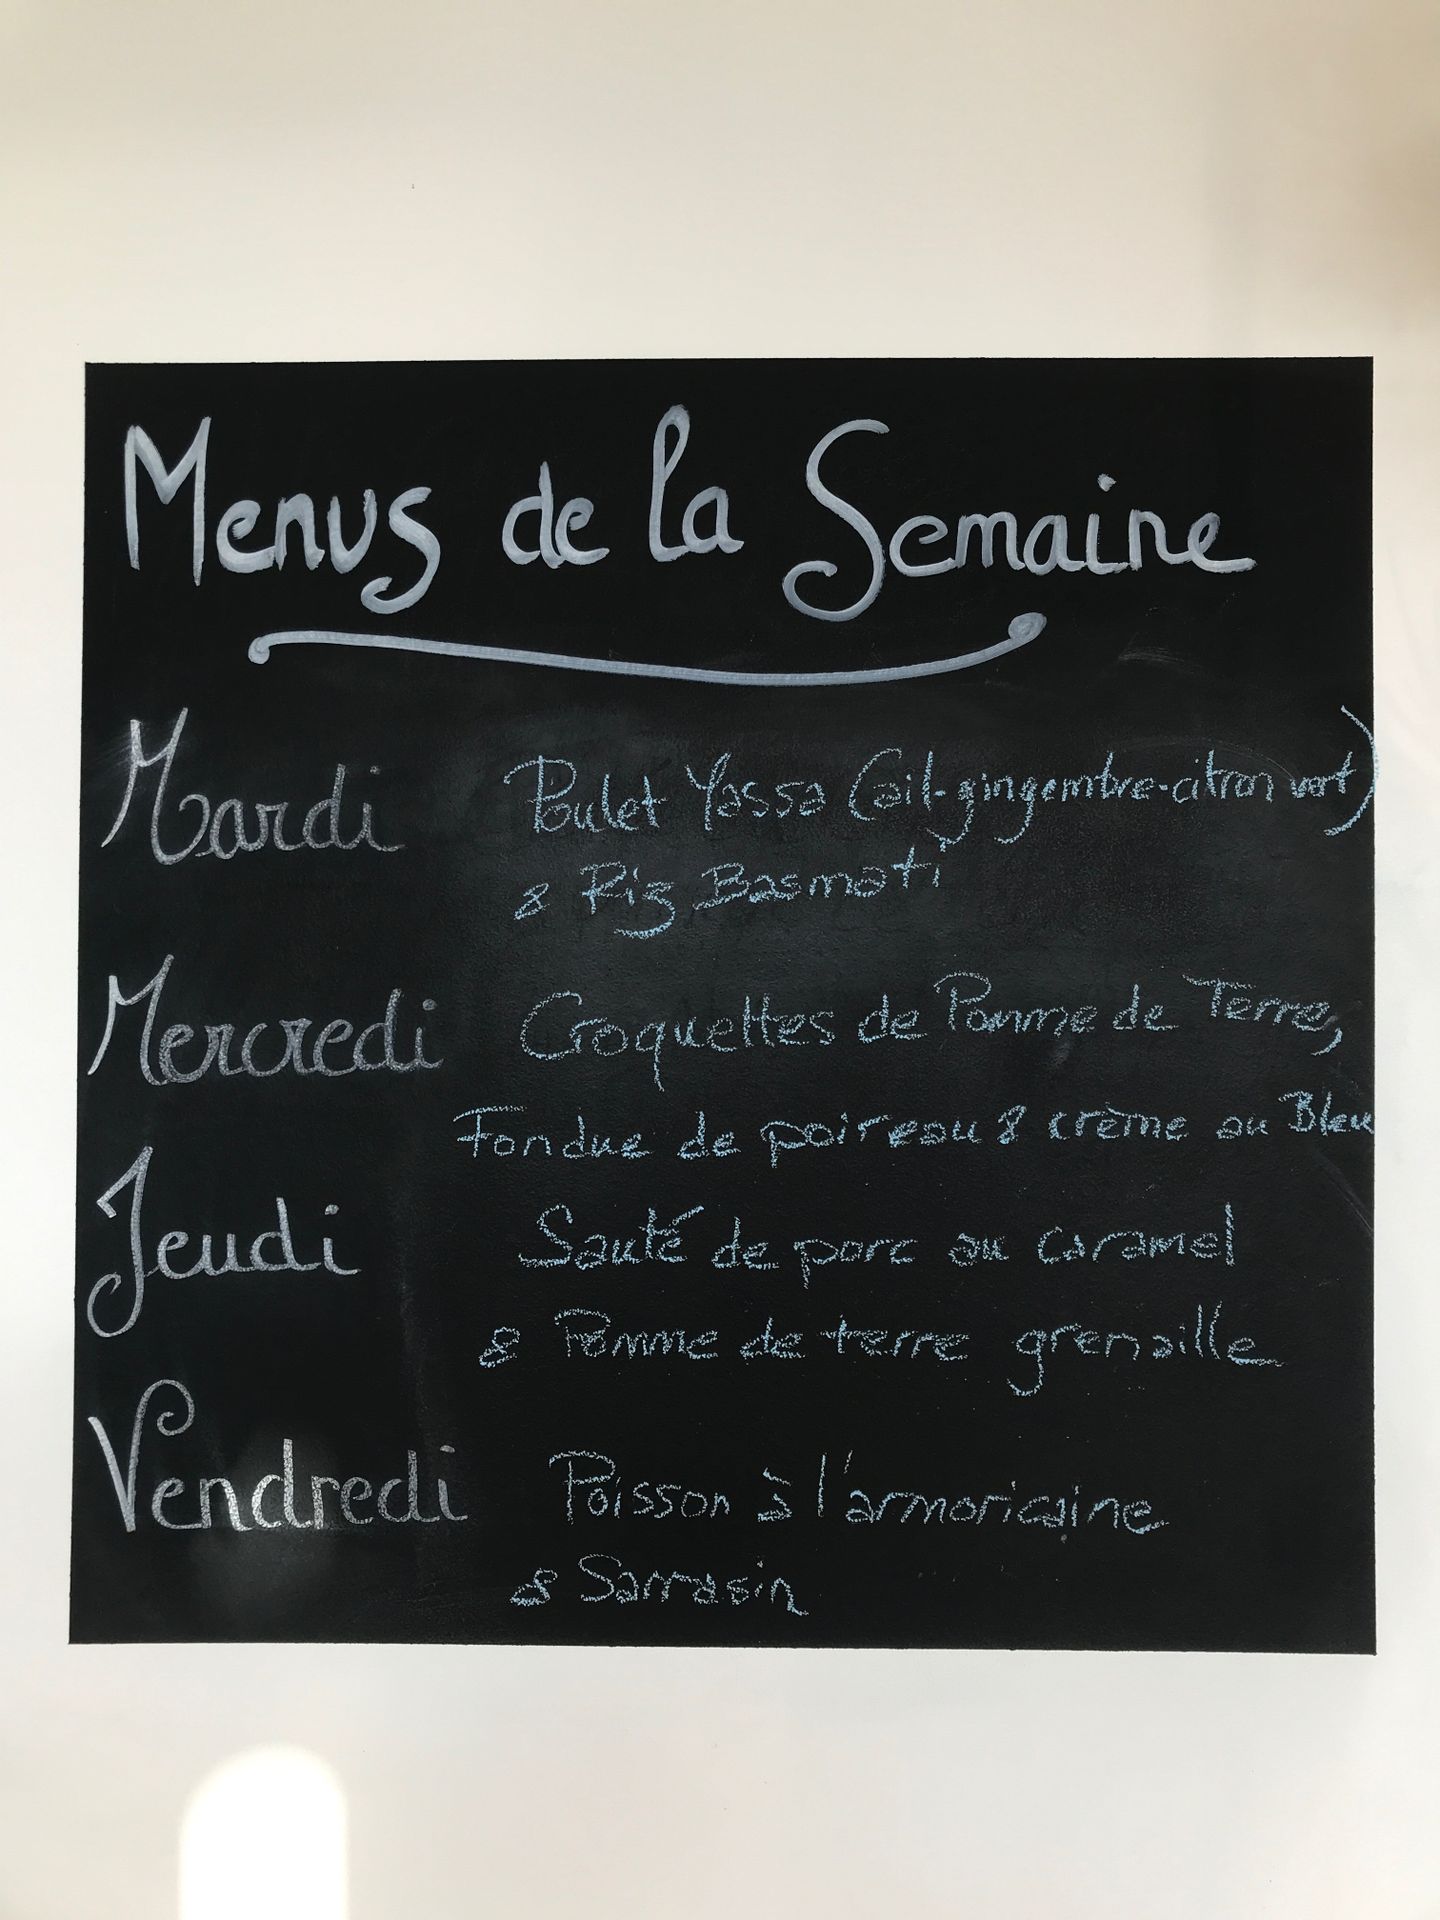 Menus de la Semaine
Mardi Poulet Yassa (ail-gingembre-citron vert)
& Riz Basmati
Mercredi Croquettes de Pomme de Terre,
Fondue de poireau & crème au Bleu
Jeudi Sauté de porc au caramel
& Pomme de terre grenaille
Vendredi Poisson à l'armoricaine
& Sarrasin